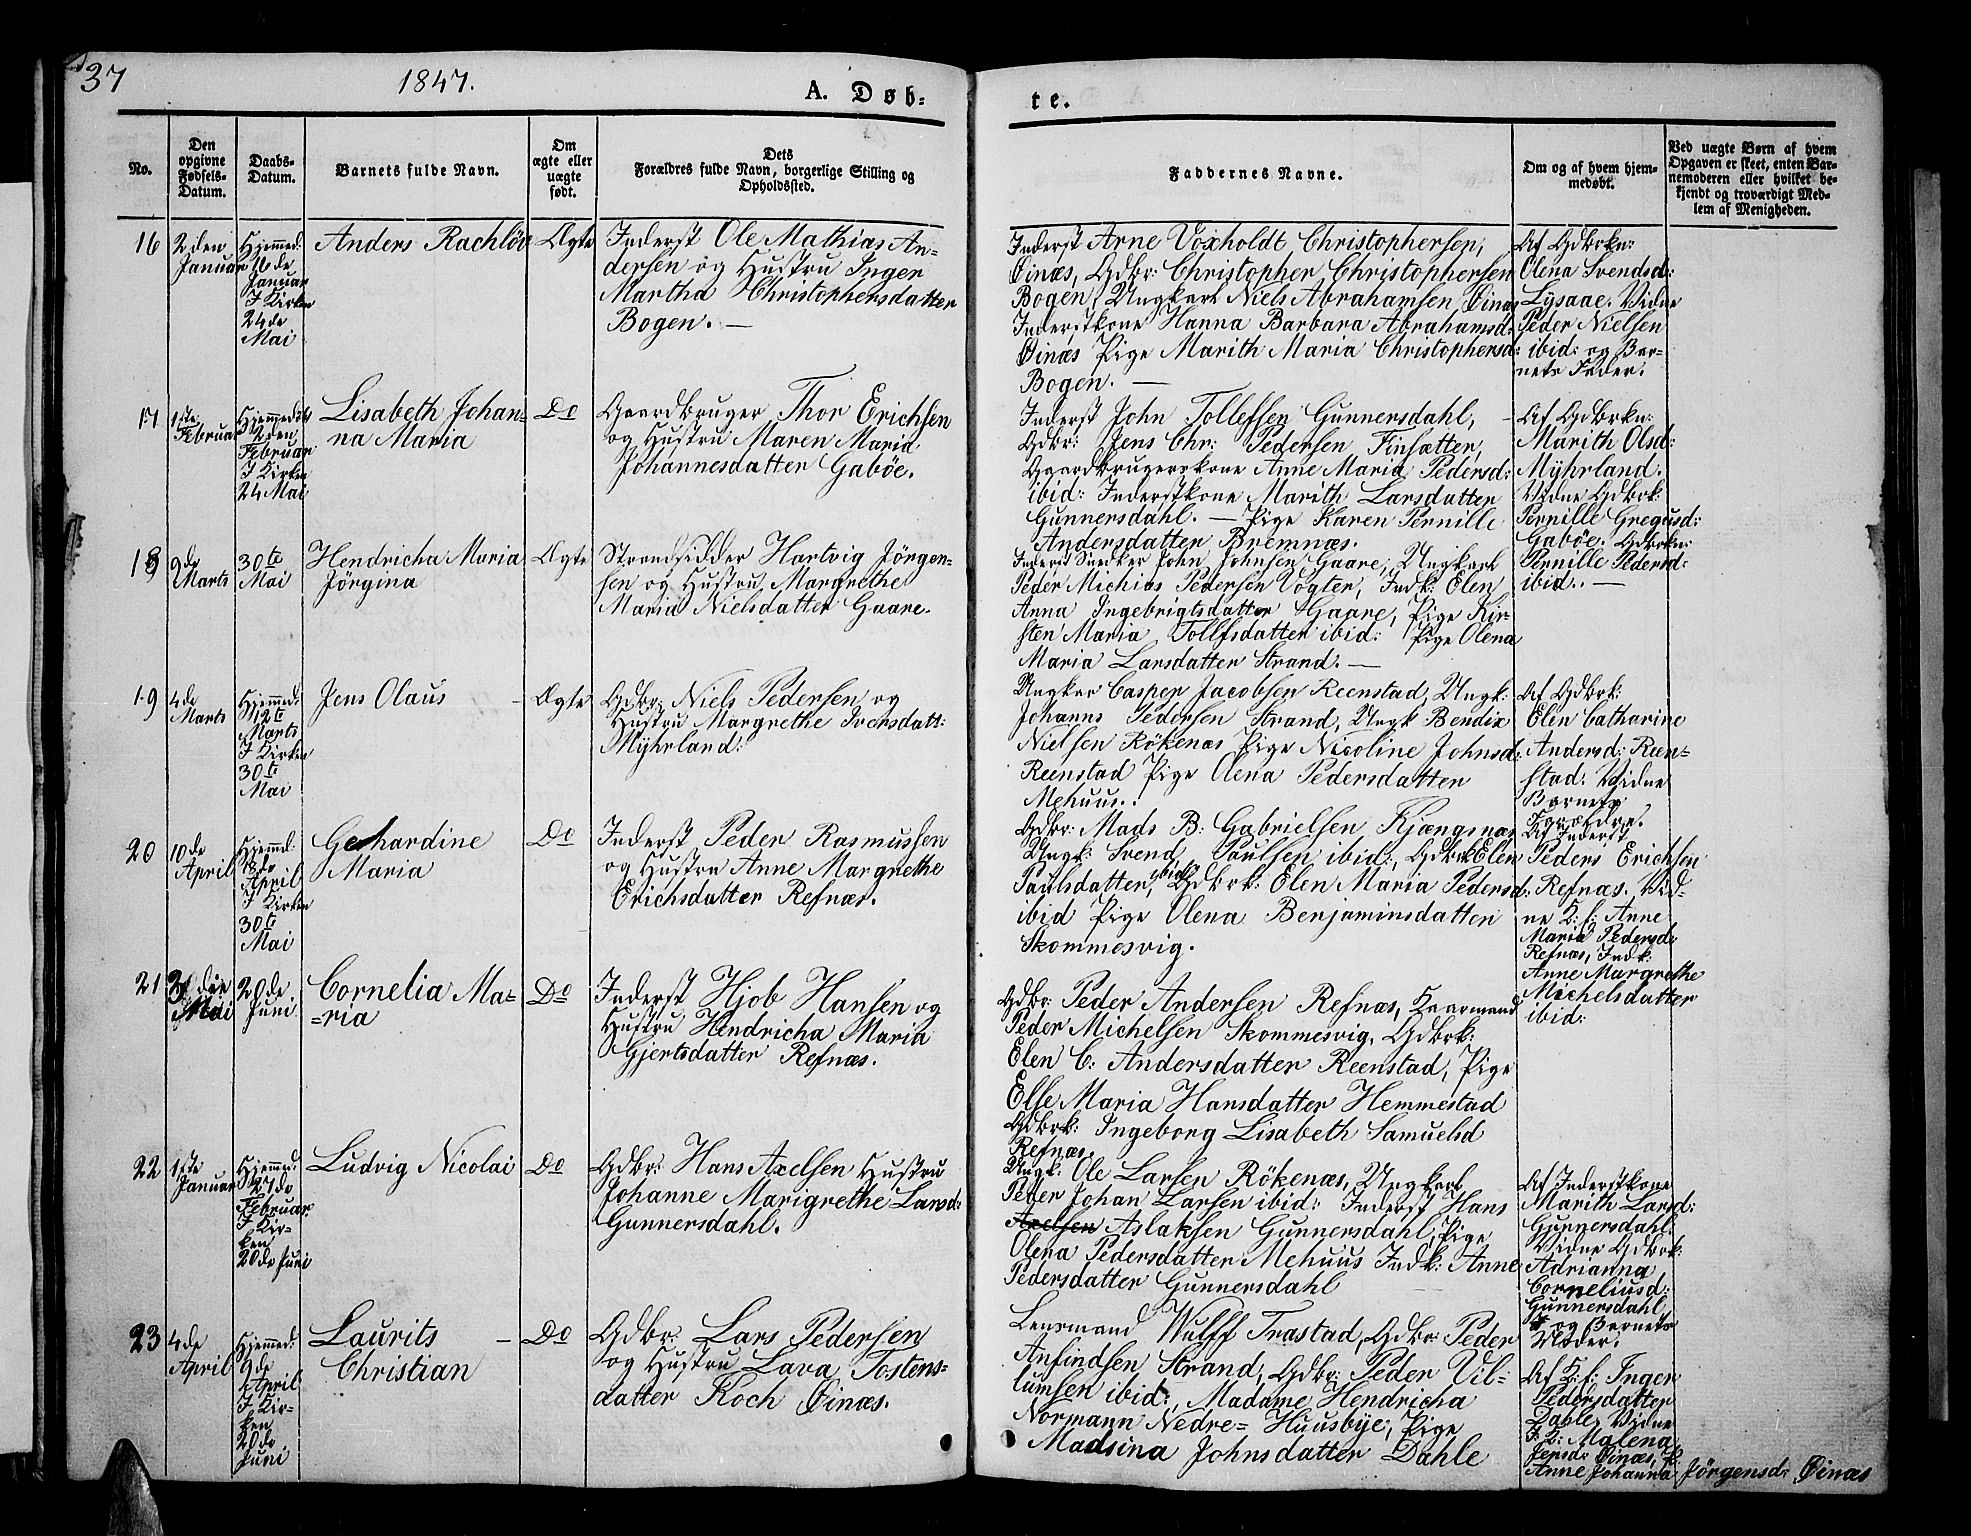 37
1847.
A. Døb-
te.
No.
Den
opgivne
Fødsels-
Datum.
Daabs-
Datum.
Barnets fulde Navn.
Om
ægte eller
uægte
født.
Dets
Forældres fulde Navn, borgerlige Stilling og
Opholdssted.
Faddernes Navne.
Om og af hvem hjem-
medøbt.
Ved uægte Børn af hvem
Opgaven er skeet, enten Bar-
nemoderen eller hvilket be-
kjendt og troværdigt Med-
lem af Menigheden.
16
2den
Januar
Hjemmed:
26de
Januar
I Kirken
24de
Mai
Anders Rachløv
Ægte
Inderst Ole Mathias An-
dersen og Hustru Inger
Martha Christophersdatter
Bogen. —
Inderst Arne Voxholdt Christophersen,
Øinæs, Gdbr: Christopher Christophersen
Bogen, Ungkarl Niels Abrahamsen Øinæs
Inderstkone Hanna Barbara Abrahamsd:
Øinæs Pige Marith Maria Christophersd:
Bogen. —
Af Gdbrkn:
Olena Svendsd:
Lysaae. Vidne
Peder Nielsen
ibid: og Bar-
nets Fader.
17
1ste
Februar
Hjemmedøbt
2den
Februar
I Kirken
24 Mai
Lisabeth Johan-
na Maria
Do
Gaardbruger Thor Erichsen
og Hustru Maren Maria
Johannesdatter Gabøe.
Inderst John Tollefsen Gunnersdahl, -
Gdbr: Jens Chr: Pedersen Finsætter,
Gaardbrugerskone Anne Maria Pedersd:
ibid: Inderstkone Marith Larsdatter
Gunnersdahl. — Pige Karen Pernille
Andersdatter Bremnæs.
Af Gdbrkn:
Marith Olsd:
Myhrland.
Vidne Gdbrk:
Pernille Gregusd:
Gabøe. Gdbrkn:
Pernille Pedersd:
ibid.. —
18
9de
Marts
30te
Mai
Hendricha Maria
Jørgina
Ægte
Strandsidder Hartvig Jörgen-
sen og Hustru Margrethe
Maria Nielsdatter Gaare.
Inderst Snedker John Johnsen Gaare, Ungkarl
Peder Michias Pedersen Vogter, Indk: Elen
Anna Ingebrigtsdatter Gaare, Pige Kir-
sten Maria Tollfsdatter ibid: Pige Olena
Maria Larsdatter Strand. —
19
4de
Marts
Hjemmed:
12te
Marts
I Kirken
30te
Mai
Jens Olaus -
Ægte
Gdbr: Niels Pedersen og
Hustru Margrethe Ivensdatt:
Myhrland:
Ungkar Casper Jacobsen Reenstad, Ungk:
Johanns Pedersen Strand, Ungk Bendix
Nielsen Rökenæs Pige Nicoline Johnsd:
Reenstad Pige Olena Pedersdatter
Mehuus..
Af Gdbrk:
Elen Catharine
Andersd: Reen-
stad: Vidne
Barnets
Forældre.
20
10de
April
Hjemmd:
13de
April
I Kirken
30te
Mai
Gerhardine
Maria
Do
Inderst Peder Rasmussen
og Hustru Anne Margrethe
Erichsdatter Refnæs.
Gdbr: Mads B: Gabrielsen Kjængsnæs
Ungk: Svend Paulsen ibid:, Gdbrk Elen
Paulsdatter, ibid Gdbrk: Elen Maria Pedersd:
ibid Pige Olena Benjaminsdatter
Skommesvig.
Af Inderst
Peders Erichsen
Refnæs. Vid-
ne K: f: Anne
Maria Pedersd:
Refnæs, Indk:
Anne Margrethe
Michelsdatter
ibid:
21
Mai
20de
Juni
Cornelia Ma=
=ria
Do
Inderst Hjob Hansen og
Hustru Hendricha Maria
Gjertsdatter Refnæs.
Gdbr: Peder Andersen Refnæs, Kaarmand
Peder Michelsen Skommesvig, Gdbrk:
Elen C: Andersdatter Reenstad, Pige
Else Maria Hansdatter Hemmestad
Gdbrk: Ingeborg Lisabeth Samuelsd
Refnæs.
22
1ste
Januar
Hjemmed:
27de
Februar
I Kir-
ken
20de Juni
Ludvig Nicolai
Do
Gdbr: Hans Axelsen Hustru
Johanne Marigrethe Larsd:
Gunnersdahl.
Ungk: Ole Larsen Rökenæs, Ungkarl
Peder Johan Larsen ibid: Inderst Hans
Axelsen Aslaksen Gunnersdahl, Pige
Olena Pedersdatter Mehuus Indk: Anne
Pedersdatter Gunnersdahl
Af Inderstkone
Marith Larsd:
Gunnersdahl.
Vidne Gdbrk:
Adrianna
Corneliusd:
Gunnersdahl
og Barnets
Moder.
23
4de
April
Hjemmed:
9de
April
I Kir-
ken
20de
Juni
Laurits -
Christian
Do
Gdbr: Lars Pedersen
og Hustru Lava Tostens-
datter Koch Øinæs.
Lensmand Wulff Trastad, Gdbr: Peder
Anfindsen Strand, Gdbr: Peder Vil-
lumsen ibid:, Madame Hendricha
Normann Nedre= Huusbye, Pige
Madsina Johnsdatter Dahle
Af K: f: Inger
Pedersdatter
Dahle, Vidne
Malena
Jensd: Øinæs,
Anne Johanna Jörgensd: Øinæs